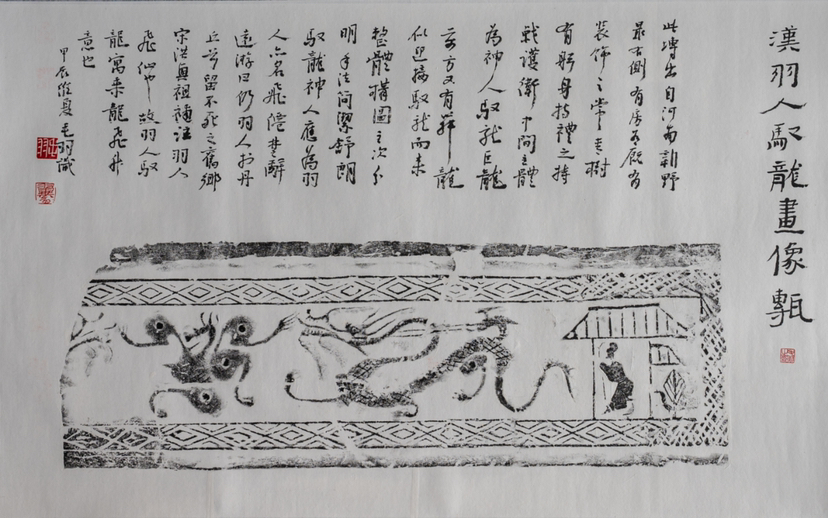 漢羽人馭龍畫像甎
此塼出自河南新野
最右側有房有 有
裝飾之常青樹
有躬身持禮之持
戟護衛中間主體
為神人馭龍巨龍
前方又有 龍
似迎接馭龍而來
整體構圖主次分
明手法簡潔舒朗
馭龍神人應為羽
人亦名飛僊楚辭
遠游曰仍羽人於丹
丘兮留不死之舊鄉
宋洪興祖補註羽人
飛仙也故羽人馭
龍寓乘龍飛升
意也
甲辰維夏毛羽識